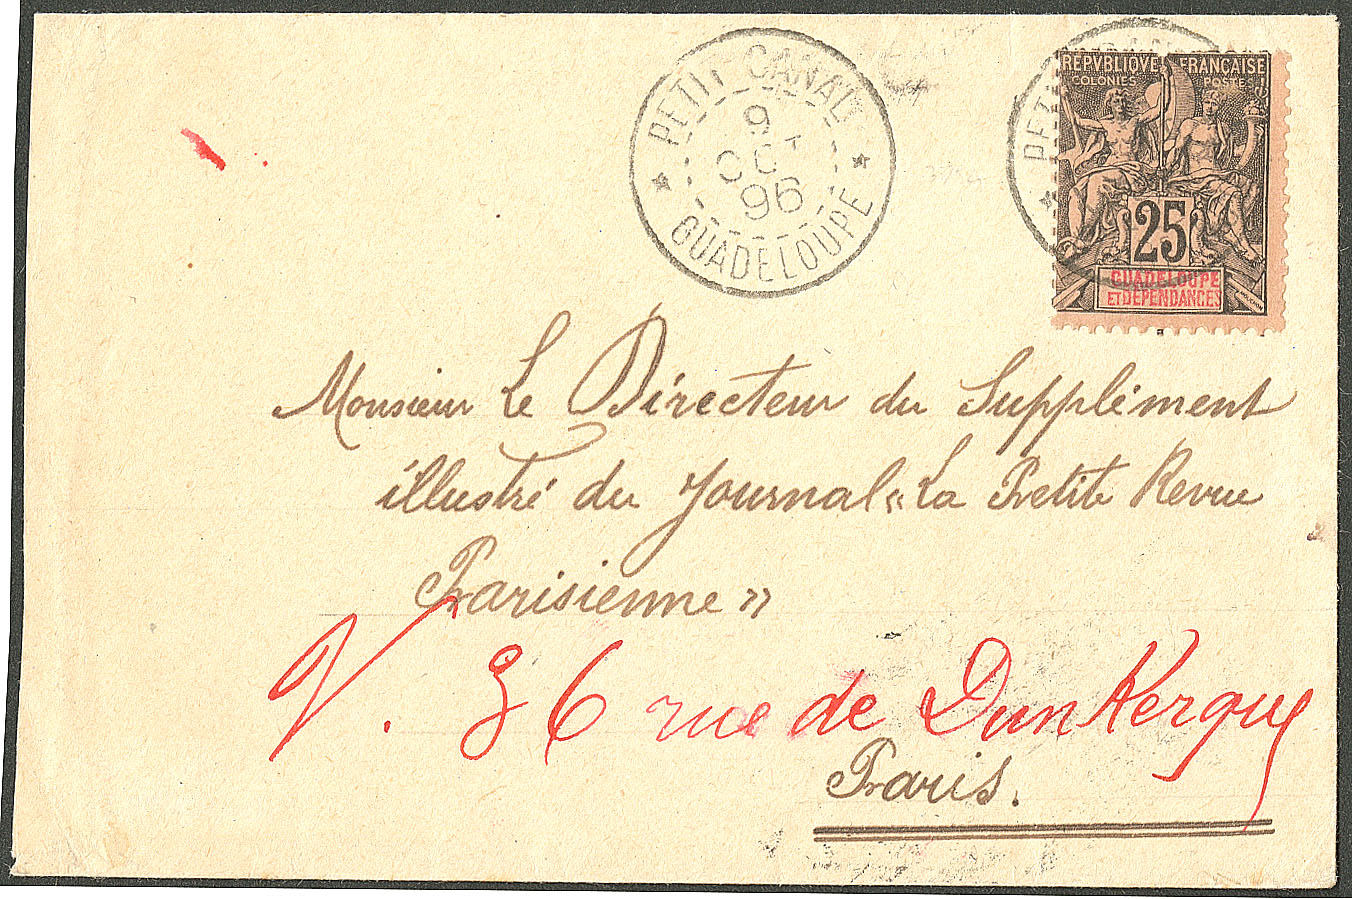 PETIT CANAL
9
OCT
96
GUADELOUPE
REPUBLIQUE FRANÇAISE
COLONIES POSTES
25
GUADELOUPE
ET DÉPENDANCES
MOUCHON
Monsieur Le Directeur du Supplément
illustré du Journal « La Petite Revue
Parisienne »
V. 36 rue de Dunkerque
Paris.